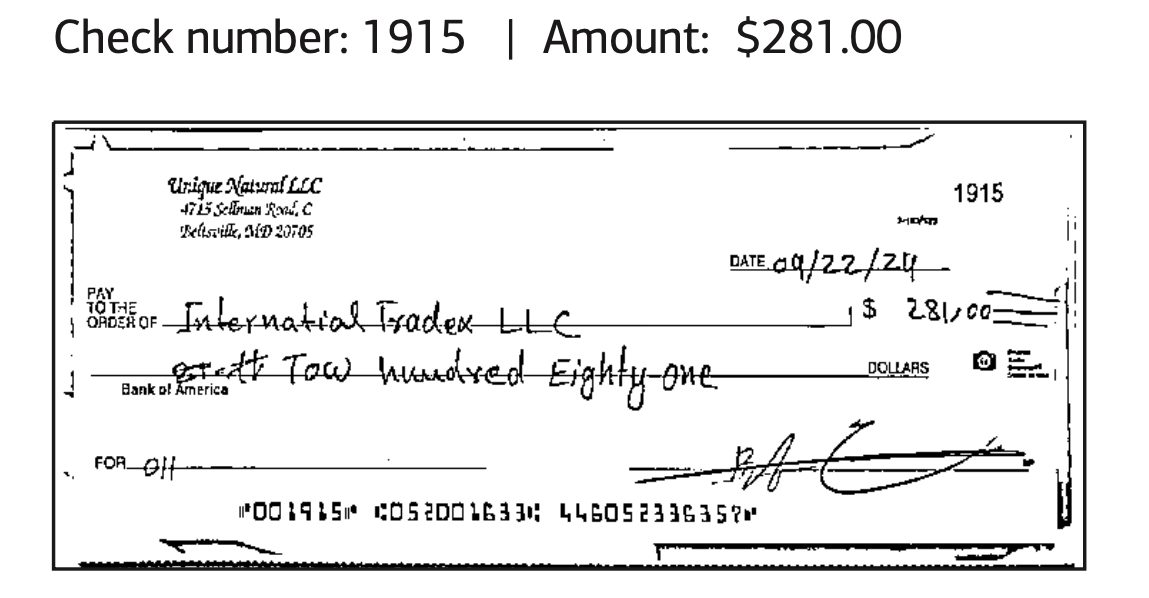 Check number: 1915 | Amount: $281.00
Unique Natural LLC
4715 Sellman Road, C
Beltsville, MD 20705
1915
DATE 09/22/24
PAY TO THE ORDER OF Internatial Tradex LLC $ 281,00
Tow hundred Eighty-one DOLLARS
Bank of America
FOR OH
⑈001915⑈ ⑆052001633⑆ 446052336357⑈